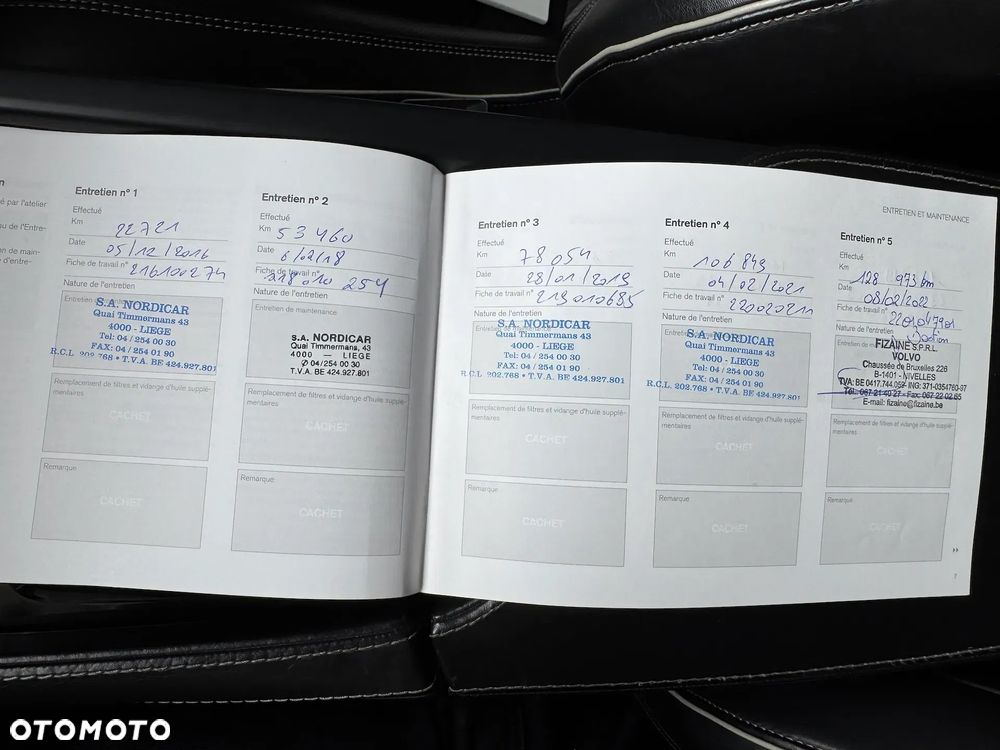 é par l'atelier
au de l'Entre-
on de main-
d'entre-
Entretien n° 1
Effectué
Km 22721
Date 05/12/2016
Fiche de travail n° 216100274
Nature de l'entretien
S.A. NORDICAR
Quai Timmermans 43
4000 - LIEGE
Tel: 04 / 254 00 30
FAX: 04 / 254 01 90
R.C.L. 202.768 • T.V.A. BE 424.927.801
Remplacement de filtres et vidange d'huile supplé-
mentaires
CACHET
Remarque
CACHET
Entretien n° 2
Effectué
Km 53460
Date 6/02/18
Fiche de travail n° 218010 254
Nature de l'entretien
Entretien de maintenance
S.A. NORDICAR
Quai Timmermans, 43
4000 — LIEGE
04/254 00 30
T.V.A. BE 424.927.801
Remplacement de filtres et vidange d'huile supplé-
mentaires
CACHET
Remarque
CACHET
Entretien n° 3
Effectué
Km 78054
Date 28/01/2019
Fiche de travail n° 219010685
Nature de l'entretien
S.A. NORDICAR
Quai Timmermans 43
4000 - LIEGE
Tel: 04 / 254 00 30
FAX: 04 / 254 01 90
R.C.L. 202.768 • T.V.A. BE 424.927.801
Remplacement de filtres et vidange d'huile supplé-
mentaires
CACHET
Remarque
CACHET
Entretien n° 4
Effectué
Km 106849
Date 04/02/2021
Fiche de travail n° 22002021
Nature de l'entretien
S.A. NORDICAR
Quai Timmermans 43
4000 - LIEGE
Tel: 04 / 254 00 30
FAX: 04 / 254 01 90
R.C.L. 202.768 • T.V.A. BE 424.927.801
Remplacement de filtres et vidange d'huile supplé-
mentaires
CACHET
Remarque
CACHET
ENTRETIEN ET MAINTENANCE
Entretien n° 5
Effectué
Km 128 973 km
Date 08/02/2022
Fiche de travail n°
Nature de l'entretien
FIZAINE S.P.R.L.
VOLVO
Chaussée de Bruxelles 226
B-1401 - NIVELLES
TVA: BE 0417.744.052 - ING: 371-0354760-97
Tél.: 067 21 40 27 - Fax: 067 22 02 65
E-mail: fizaine@fizaine.be
Remplacement de filtres et vidange d'huile supplé-
mentaires
CACHET
Remarque
CACHET
7
OTOMOTO